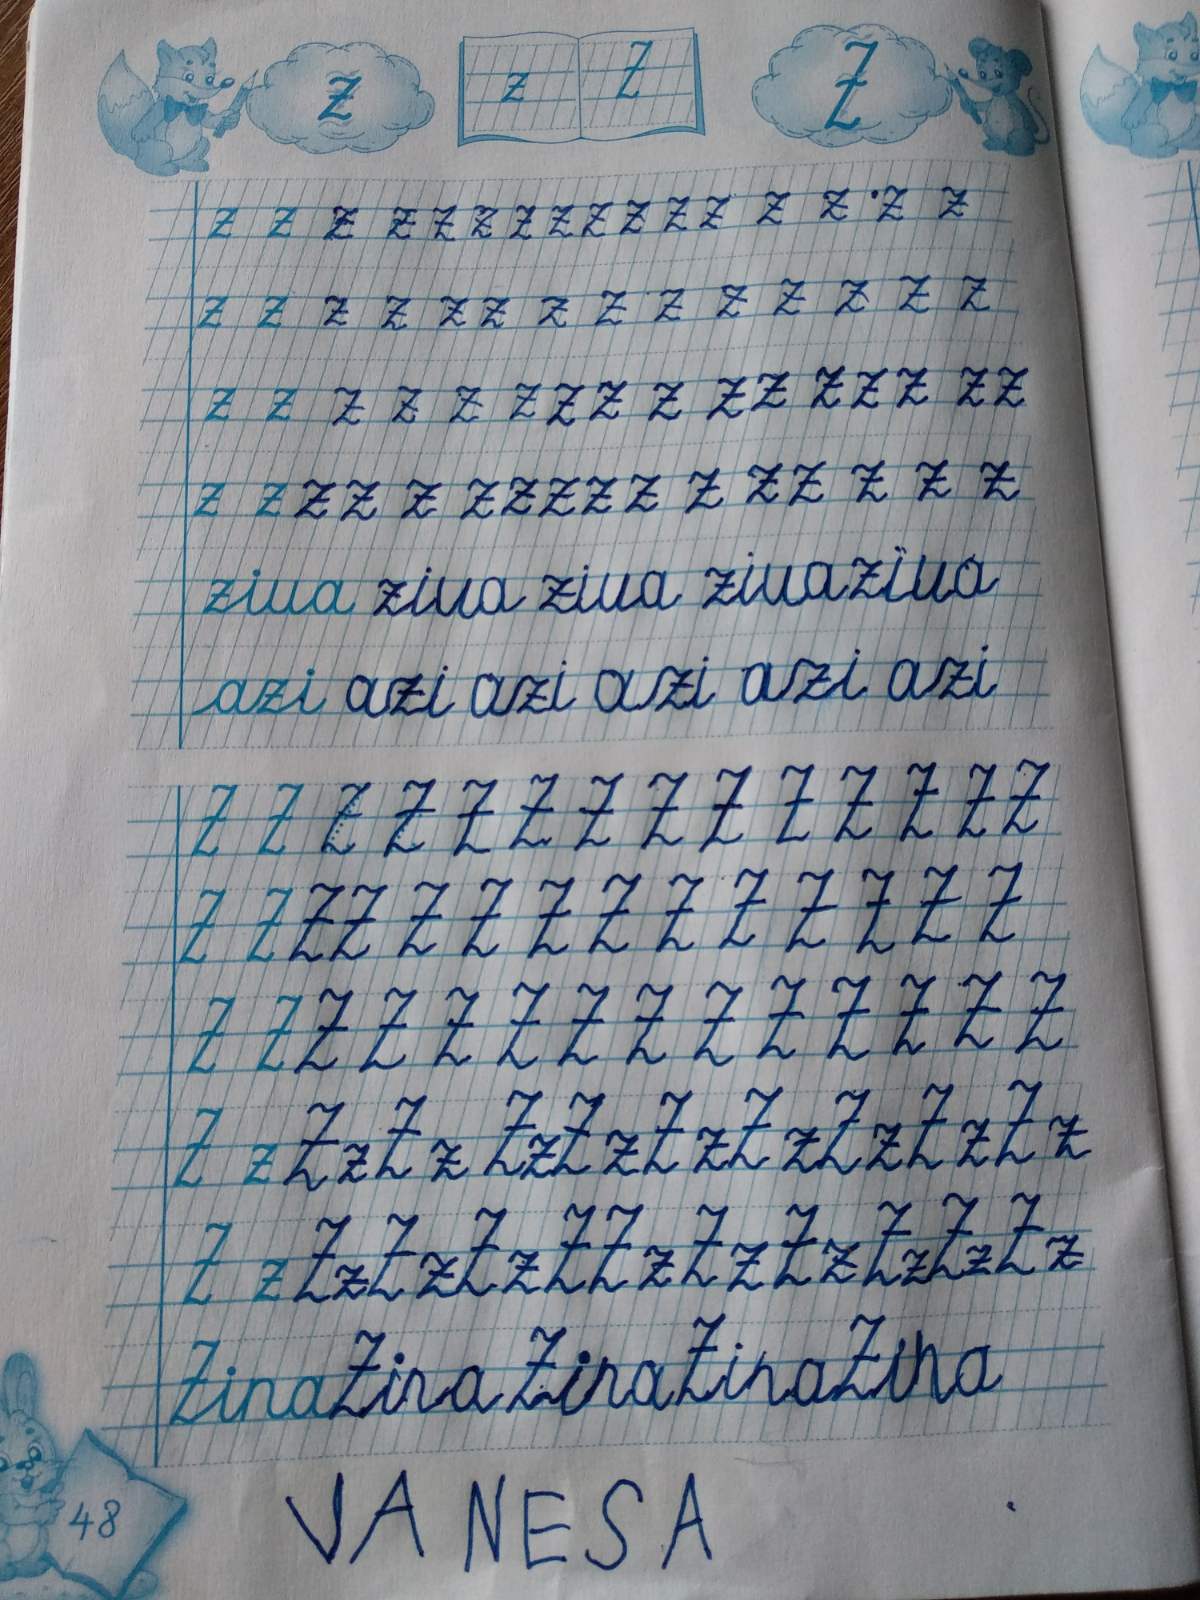 z z Z Z
z z z z z z z z z z z z z z z z
z z z z z z z z z z z z z z
z z z z z z z z z z z z z z z z
z z z z z z z z z z z z z z z z
ziua ziua ziua ziua ziua
azi azi azi azi azi azi
Z Z Z Z Z Z Z Z Z Z Z Z Z Z
Z Z Z Z Z Z Z Z Z Z Z Z Z Z
Z Z Z Z Z Z Z Z Z Z Z Z Z Z
Z z Z z Z z Z z Z z Z z Z z Z z Z z Z z
Z z Z z Z z Z z Z Z z Z z Z z Z z Z z Z z
Zina Zina Zina Zina Zina
VANESA
48